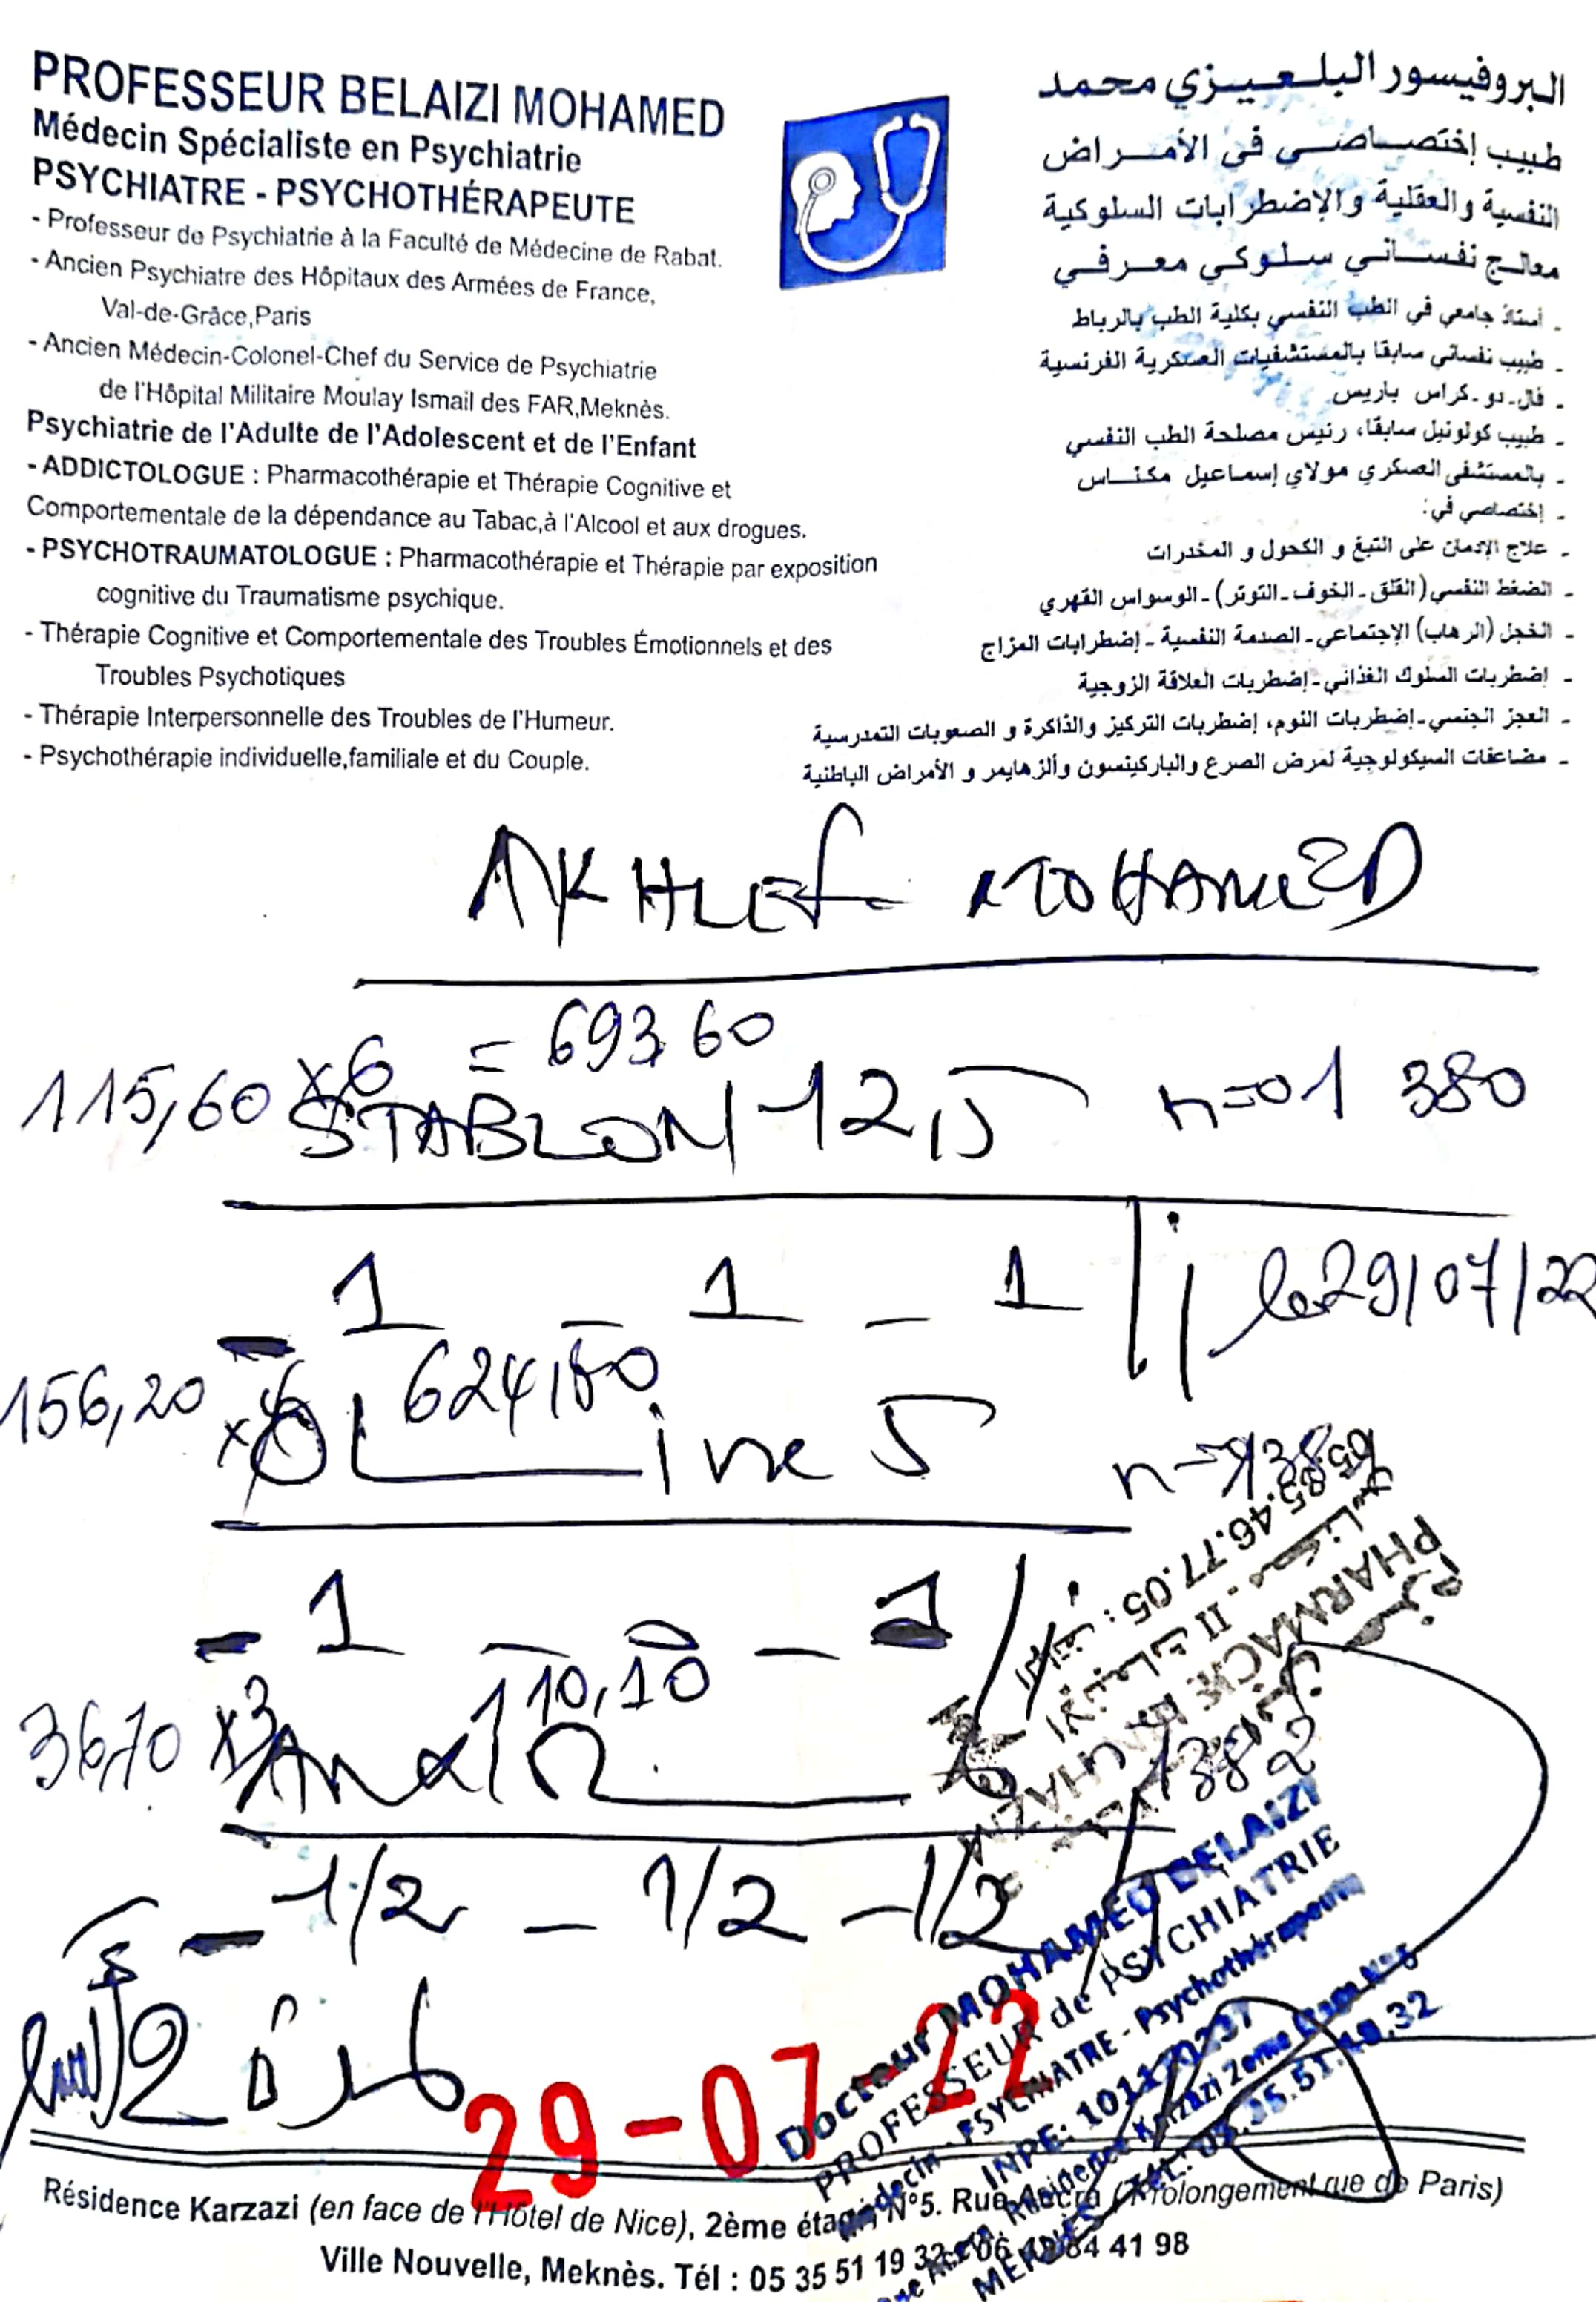 PROFESSEUR BELAIZI MOHAMED
Médecin Spécialiste en Psychiatrie
PSYCHIATRE - PSYCHOTHÉRAPEUTE
- Professeur de Psychiatrie à la Faculté de Médecine de Rabat.
- Ancien Psychiatre des Hôpitaux des Armées de France,
Val-de-Grâce,Paris
- Ancien Médecin-Colonel-Chef du Service de Psychiatrie
de l'Hôpital Militaire Moulay Ismail des FAR,Meknès.
Psychiatrie de l'Adulte de l'Adolescent et de l'Enfant
- ADDICTOLOGUE : Pharmacothérapie et Thérapie Cognitive et
Comportementale de la dépendance au Tabac,à l'Alcool et aux drogues.
- PSYCHOTRAUMATOLOGUE : Pharmacothérapie et Thérapie par exposition
cognitive du Traumatisme psychique.
- Thérapie Cognitive et Comportementale des Troubles Émotionnels et des
Troubles Psychotiques
- Thérapie Interpersonnelle des Troubles de l'Humeur.
- Psychothérapie individuelle,familiale et du Couple.
البروفيسور البلعيزي محمد
طبيب إختصاصي في الأمراض
النفسية والعقلية والإضطرابات السلوكية
معالج نفساني سلوكي معرفي
- أستاذ جامعي في الطب النفسي بكلية الطب بالرباط
- طبيب نفساني سابقا بالمستشفيات العسكرية الفرنسية
- فال-دو-كراس باريس
- طبيب كولونيل سابقا، رئيس مصلحة الطب النفسي
- بالمستشفى العسكري مولاي إسماعيل مكناس
- إختصاصي في:
- علاج الإدمان على التبغ و الكحول و المخدرات
- الضغط النفسي (القلق - الخوف - التوتر) - الوسواس القهري
- الخجل (الرهاب) الإجتماعي - الصدمة النفسية - إضطرابات المزاج
- إضطربات السلوك الغذائي - إضطربات العلاقة الزوجية
- العجز الجنسي - إضطربات النوم، إضطربات التركيز والذاكرة و الصعوبات التمدرسية
- مضاعفات السيكولوجية لمرض الصرع والباركينسون وألزهايمر و الأمراض الباطنية
AKHLEF MOHAMED
115,60 x6 = 693,60
STABLON 12,5 n=01 380
- 1 - 1 - 1 / j le 29/07/22
156,20 x4 624,80
OLine 5
- 1 - 0 - 1 / j
36,70 x3 110,10
1382
- 1/2 - 1/2 - 1/2
29-07-22
65.85.46.77.05
PHARMACIE
Docteur MOHAMED BELAIZI
PROFESSEUR de PSYCHIATRIE
Médecin - PSYCHIATRE - Psychothérapeute
Résidence Karzazi (en face de l'Hôtel de Nice), 2ème étage, N°5. Rue Accra (Prolongement rue de Paris)
Ville Nouvelle, Meknès. Tél : 05 35 51 19 32 84 41 98